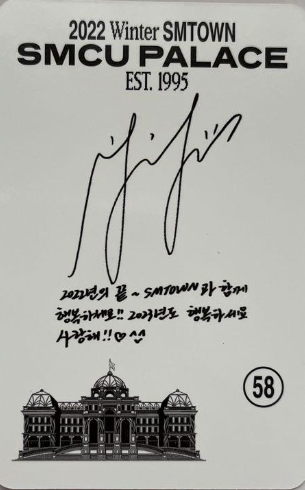 2022 Winter SMTOWN
SMCU PALACE
EST. 1995
2022년의 끝~ SMTOWN과 함께
행복하세요!! 2023년도 행복하세요
사랑해!!♡^^
58